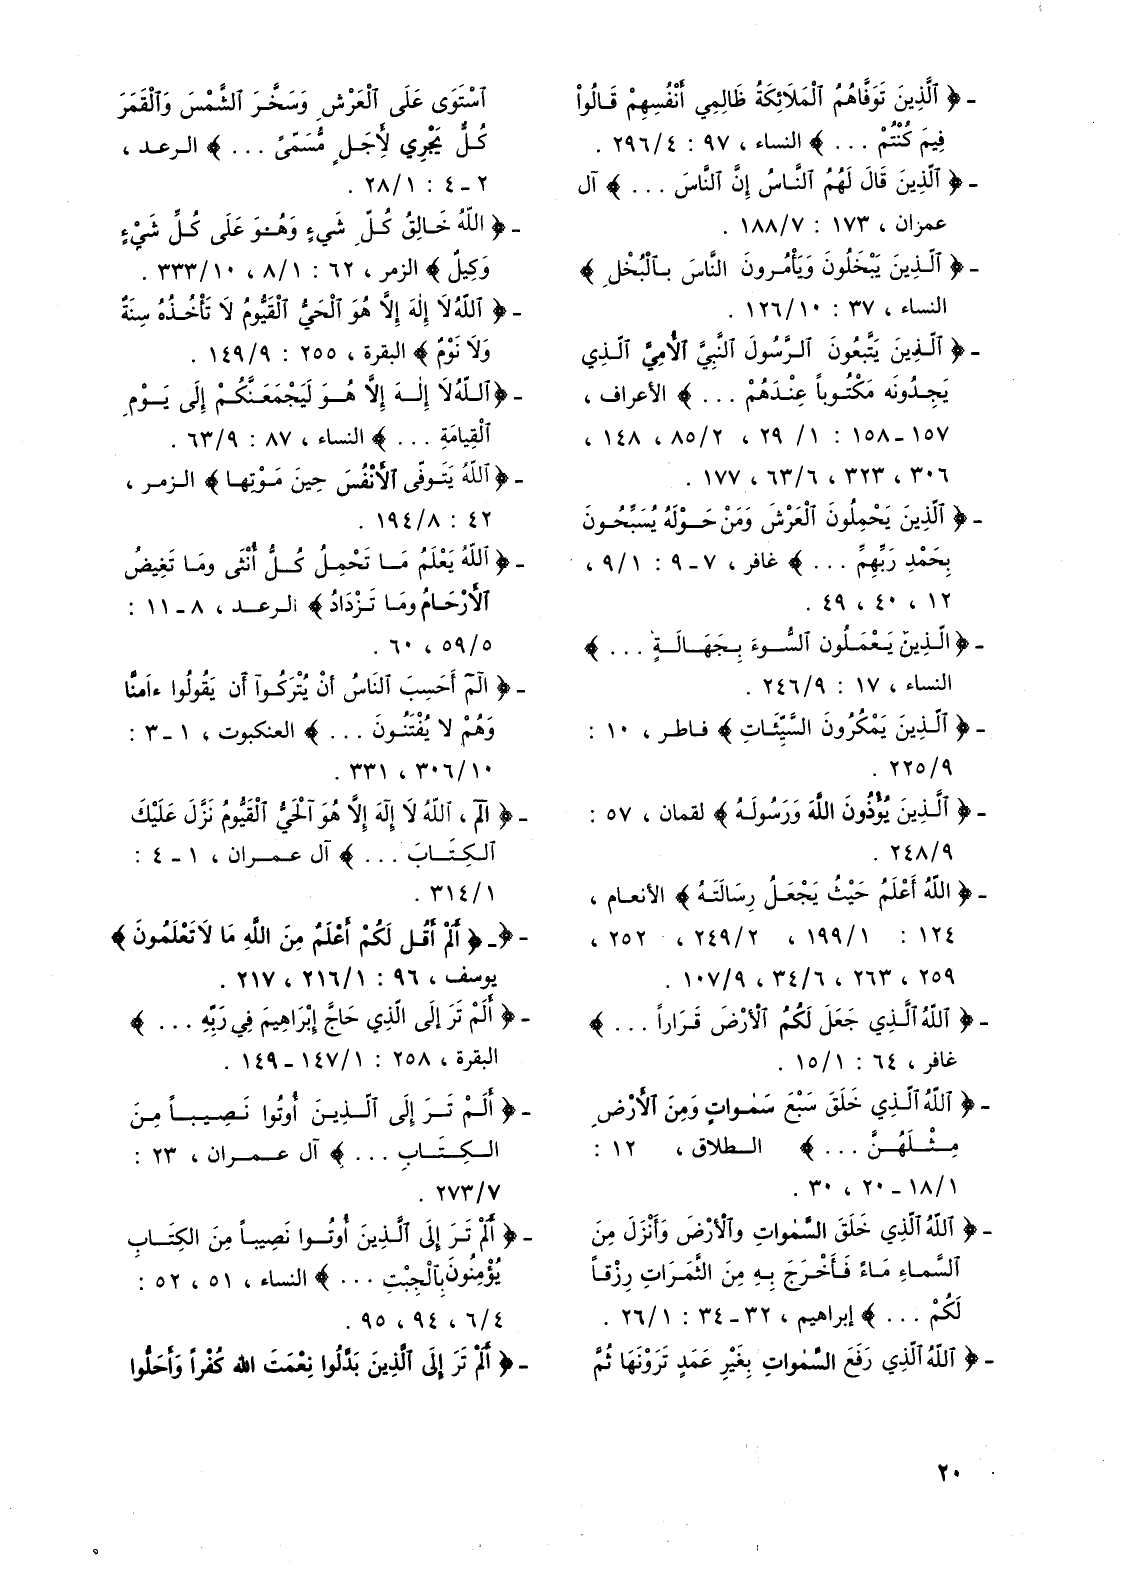 - ﴿ ٱلَّذِينَ تَوَفَّاهُمُ ٱلْمَلَائِكَةُ ظَالِمِي أَنْفُسِهِمْ قَالُواْ
فِيمَ كُنْتُمْ ... ﴾ النساء ، ٩٧ : ٢٩٦/٤ .
- ﴿ ٱلَّذِينَ قَالَ لَهُمُ ٱلنَّاسُ إِنَّ ٱلنَّاسَ ... ﴾ آل
عمران ، ١٧٣ : ١٨٨/٧ .
- ﴿ ٱلَّذِينَ يَبْخَلُونَ وَيَأْمُرونَ النَّاسَ بِٱلْبُخْلِ ﴾
النساء ، ٣٧ : ١٢٦/١٠ .
- ﴿ ٱلَّذِينَ يَتَّبِعُونَ ٱلرَّسُولَ ٱلنَّبِيَّ ٱلأُمِيَّ ٱلَّذِي
يَجِدُونَه مَكْتُوباً عِنْدَهُمْ ... ﴾ الأعراف ،
١٥٧ـ١٥٨ : ١/ ٢٩ ، ٨٥/٢ ، ١٤٨ ،
٣٠٦ ، ٣٢٣ ، ٦٣/٦ ، ١٧٧ .
- ﴿ ٱلَّذِينَ يَحْمِلُونَ ٱلْعَرْشَ وَمَنْ حَوْلَهُ يُسَبِّحُونَ
بِحَمْدِ رَبِّهِمْ ... ﴾ غافر ، ٧ـ٩ : ٩/١ ،
١٢ ، ٤٠ ، ٤٩ .
- ﴿ الَّذِينَ يَعْمَلُون ٱلسُّوءَ بِجَهَالَةٍ ... ﴾
النساء ، ١٧ : ٢٤٦/٩ .
- ﴿ ٱلَّذِينَ يَمْكُرُونَ السَّيِّئَاتِ ﴾ فاطر ، ١٠ :
٢٢٥/٩ .
- ﴿ ٱلَّذِينَ يُؤْذُونَ اللَّهَ وَرَسُولَهُ ﴾ لقمان ، ٥٧ :
٢٤٨/٩ .
- ﴿ اللَّهُ أَعْلَمُ حَيْثُ يَجْعَلُ رِسَالَتَهُ ﴾ الأنعام ،
١٢٤ : ١٩٩/١ ، ٢٤٩/٢ ، ٢٥٢ ،
٢٥٩ ، ٢٦٣ ، ٣٤/٦ ، ١٠٧/٩ .
- ﴿ ٱللَّهُ ٱلَّذِي جَعَلَ لَكُمُ ٱلْأَرْضَ قَرَاراً ... ﴾
غافر ، ٦٤ : ١٥/١ .
- ﴿ ٱللَّهُ ٱلَّذِي خَلَقَ سَبْعَ سَمٰواتٍ وَمِنَ ٱلأَرْضِ
مِثْلَهُنَّ ... ﴾ الطلاق ، ١٢ :
١٨/١ ـ ٢٠ ، ٣٠ .
- ﴿ ٱللَّهُ ٱلَّذِي خَلَقَ السَّمٰواتِ وٱلْأَرْضَ وَأَنْزَلَ مِنَ
ٱلسَّماءِ مَاءً فَأَخْرَجَ بِهِ مِنَ الثَّمَرَاتِ رِزْقاً
لَكُمْ ... ﴾ إبراهيم ، ٣٢ـ٣٤ : ٢٦/١ .
- ﴿ ٱللَّهُ ٱلَّذِي رَفَعَ السَّمٰواتِ بِغَيْرِ عَمَدٍ تَرَوْنَهَا ثُمَّ
ٱسْتَوَى عَلَى ٱلْعَرْشِ وَسَخَّرَ الشَّمْسَ وَٱلْقَمَرَ
كُلٌّ يَجْرِي لِأَجَلٍ مُّسَمّىً ... ﴾ الرعد ،
٢ـ٤ : ٢٨/١ .
- ﴿ اللَّهُ خَالِقُ كُلِّ شَيءٍ وَهُوَ عَلَى كُلِّ شَيْءٍ
وَكِيلٌ ﴾ الزمر ، ٦٢ : ٨/١ ، ٣٣٣/١٠ .
- ﴿ ٱللَّهُ لَا إِلٰهَ إِلَّا هُوَ ٱلْحَيُّ ٱلْقَيُّومُ لَا تَأْخُذُهُ سِنَةٌ
وَلَا نَوْمٌ ﴾ البقرة ، ٢٥٥ : ١٤٩/٩ .
- ﴿ ٱللَّهُ لَا إِلٰهَ إِلَّا هُوَ لَيَجْمَعَنَّكُمْ إِلَى يَوْمِ
ٱلْقِيَامَةِ ... ﴾ النساء ، ٨٧ : ٦٣/٩ .
- ﴿ ٱللَّهُ يَتَوفَّى ٱلأَنْفُسَ حِينَ مَوْتِهَا ﴾ الزمر ،
٤٢ : ١٩٤/٨ .
- ﴿ ٱللَّهُ يَعْلَمُ مَا تَحْمِلُ كُلُّ أُنْثَى ومَا تَغِيضُ
ٱلْأَرْحَامُ ومَا تَزْدَادُ ﴾ الرعد ، ٨ـ١١ :
٥٩/٥ ، ٦٠ .
- ﴿ الَمَ أَحَسِبَ ٱلنَاسُ أَنْ يُتْرَكُوآ أَن يَقُولُوا ءامَنَّا
وَهُمْ لا يُفْتَنُونَ ... ﴾ العنكبوت ، ١ـ٣ :
٣٠٦/١٠ ، ٣٣١ .
- ﴿ الٓمٓ ، ٱللَّهُ لَا إِلَهَ إِلَّا هُوَ ٱلْحَيُّ ٱلْقَيُّومُ نَزَّلَ عَلَيْكَ
ٱلْكِتَابَ ... ﴾ آل عمران ، ١ـ٤ :
٣١٤/١ .
- ﴿ـ ﴿ أَلَمْ أَقُل لَكُمْ أَعْلَمُ مِنَ اللَّهِ مَا لَا تَعْلَمُونَ ﴾
يوسف ، ٩٦ : ٢١٦/١ ، ٢١٧ .
- ﴿ أَلَمْ تَرَ إِلَى الَّذِي حَاجَّ إِبْرَاهِيمَ فِي رَبِّهِ ... ﴾
البقرة ، ٢٥٨ : ١٤٧/١ ـ ١٤٩ .
- ﴿ أَلَمْ تَرَ إِلَى ٱلَّذِينَ أُوتُوا نَصِيباً مِنَ
الْكِتَابِ ... ﴾ آل عمران ، ٢٣ :
٢٧٣/٧ .
- ﴿ أَلَمْ تَرَ إِلَى ٱلَّذِينَ أُوتُوا نَصِيباً مِنَ الكِتَابِ
يُؤْمِنُونَ بِٱلْجِبْتِ ... ﴾ النساء ، ٥١ ، ٥٢ :
٦/٤ ، ٩٤ ، ٩٥ .
- ﴿ أَلَمْ تَرَ إِلَى ٱلَّذِينَ بَدَّلُوا نِعْمَتَ الله كُفْراً وَأَحَلُّوا
٢٠